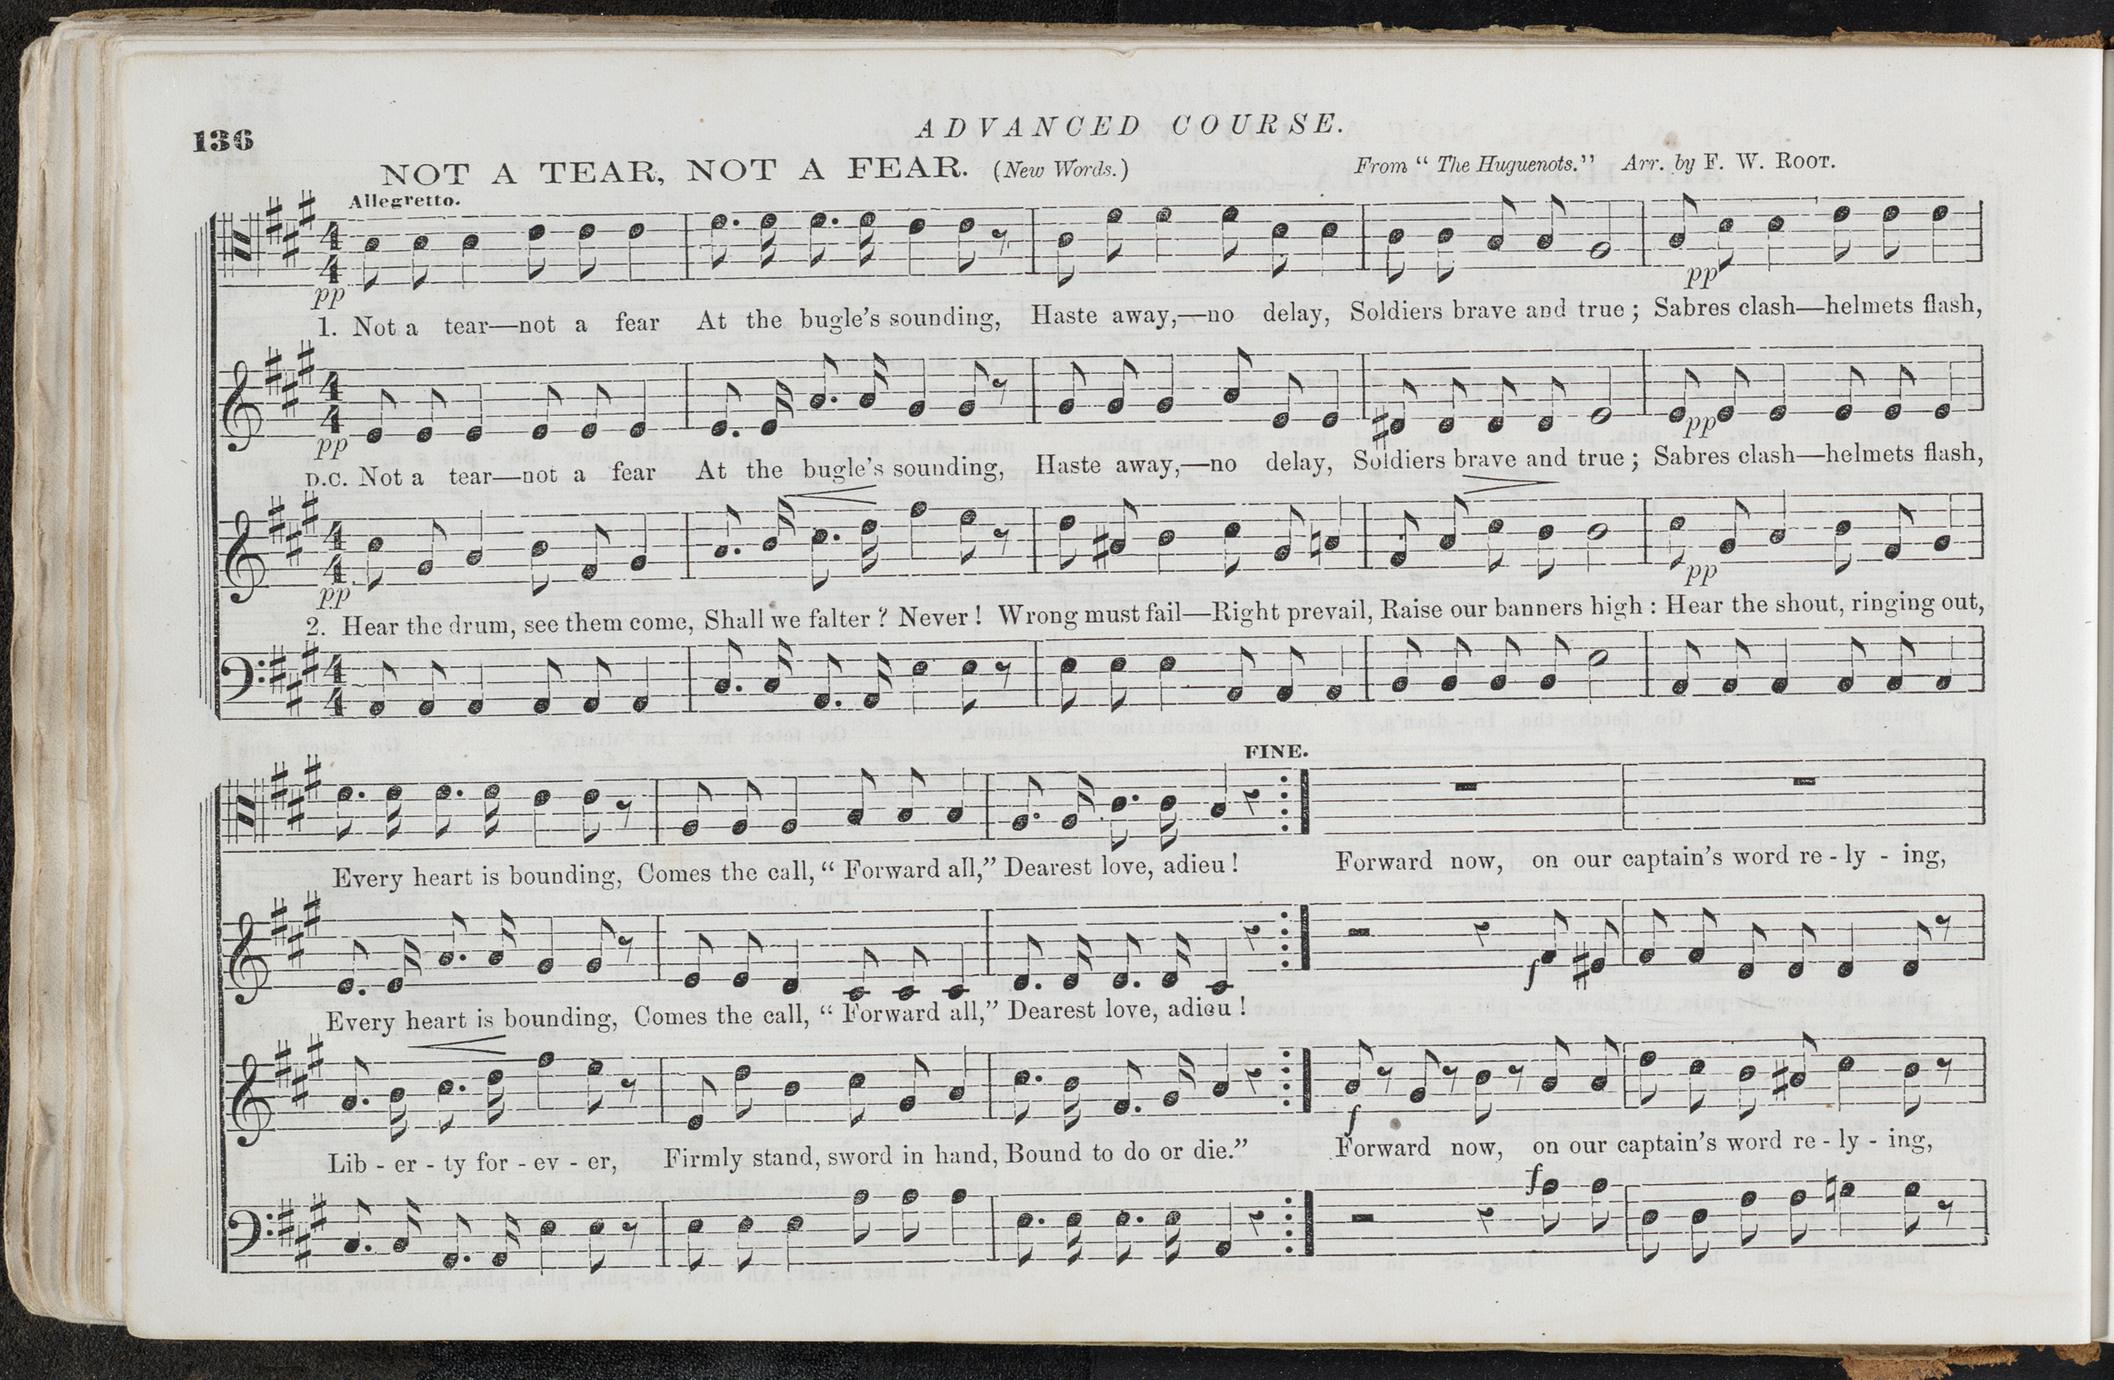 136
ADVANCED COURSE.
NOT A TEAR, NOT A FEAR. (New Words.) From "The Huguenots." Arr. by F. W. ROOT.
Allegretto.
4 4
pp
pp
1. Not a tear—not a fear At the bugle's sounding, Haste away,—no delay, Soldiers brave and true; Sabres clash—helmets flash,
4 4
pp
pp
D.C. Not a tear—not a fear At the bugle's sounding, Haste away,—no delay, Soldiers brave and true; Sabres clash—helmets flash,
4 4
pp
pp
2. Hear the drum, see them come, Shall we falter? Never! Wrong must fail—Right prevail, Raise our banners high: Hear the shout, ringing out,
4 4
FINE.
Every heart is bounding, Comes the call, "Forward all," Dearest love, adieu! Forward now, on our captain's word re-ly-ing,
f
Every heart is bounding, Comes the call, "Forward all," Dearest love, adieu!
f
Lib-er-ty for-ev-er, Firmly stand, sword in hand, Bound to do or die." Forward now, on our captain's word re-ly-ing,
f